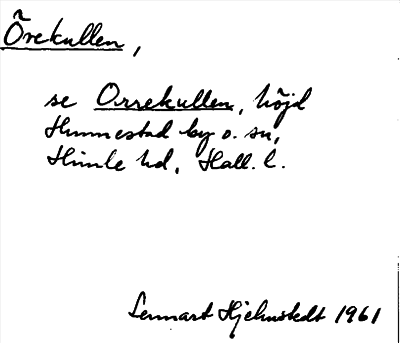 Örekullen,
se Orrekullen, höjd
Hunnestad by o. sn,
Himle hd, Hall. l.
Lennart Hjelmstedt 1961